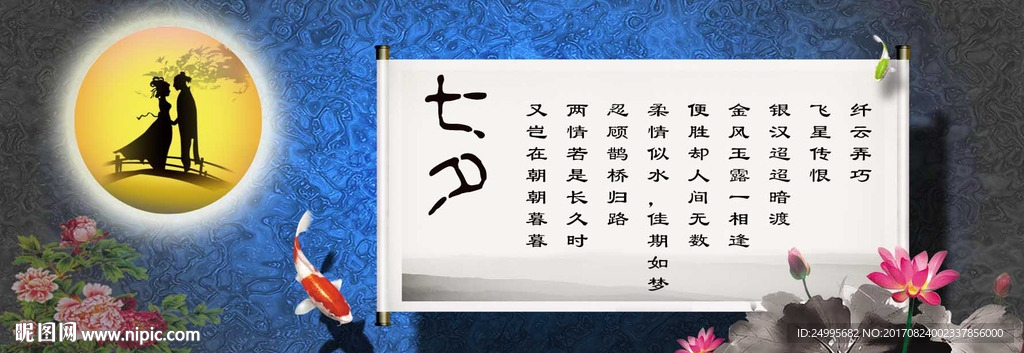 七夕
纤云弄巧
飞星传恨
银汉迢迢暗渡
金风玉露一相逢
便胜却人间无数
柔情似水,佳期如梦
忍顾鹊桥归路
两情若是长久时
又岂在朝朝暮暮
昵图网 www.nipic.com
ID:24995682 NO:20170824002337856000